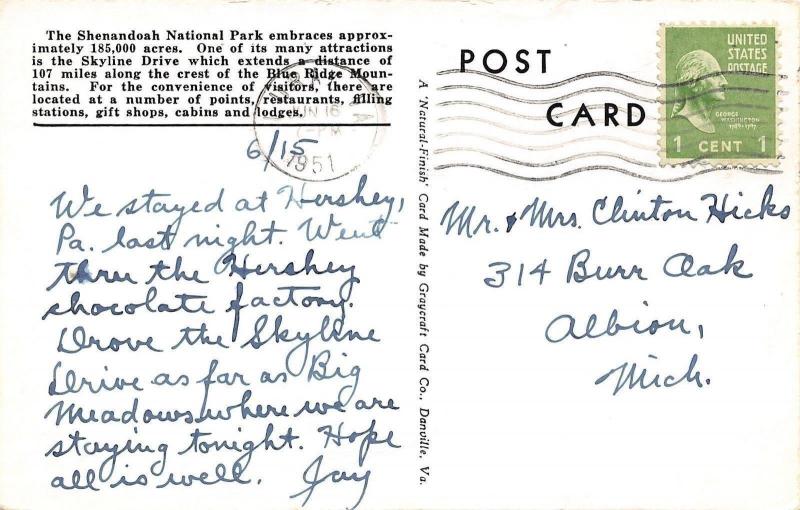 The Shenandoah National Park embraces approx-
imately 185,000 acres. One of its many attractions
is the Skyline Drive which extends a distance of
107 miles along the crest of the Blue Ridge Moun-
tains. For the convenience of visitors, there are
located at a number of points, restaurants, filling
stations, gift shops, cabins and lodges.
JUN 16
PM
1951
6/15
We stayed at Hershey,
Pa. last night. Went
thru the Hershey
chocolate factory.
Drove the Skyline
Drive as far as Big
Meadows where we are
staying tonight. Hope
all is well. Jay
A 'Natural-Finish' Card Made by Graycraft Card Co., Danville, Va.
POST
CARD
UNITED
STATES
POSTAGE
GEORGE
WASHINGTON
1789-1797
1 CENT 1
Mr. & Mrs. Clinton Hicks
314 Burr Oak
Albion,
Mich.